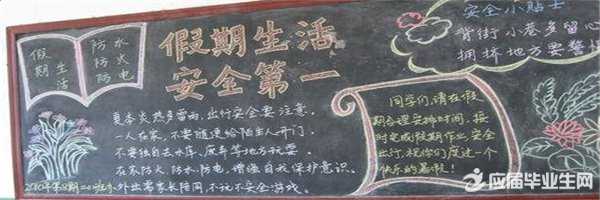 假期生活
防水
防火
防电
假期生活
安全第一
夏季炎热多雷雨,出行安全要注意。
一人在家,不要随便给陌生人开门,
不要独自去水库、废弃等地方玩耍。
在家防火、防水、防电,增强自我保护意识。
外出需家长陪同,不玩不安全游戏。
同学们,请在假
期合理安排时间,按
时完成假期作业,安全
出行,祝你们度过一个
快乐的暑假!
安全小贴士
背街小巷多留心
拥挤地方要警惕
应届毕业生网
YJBYS.COM